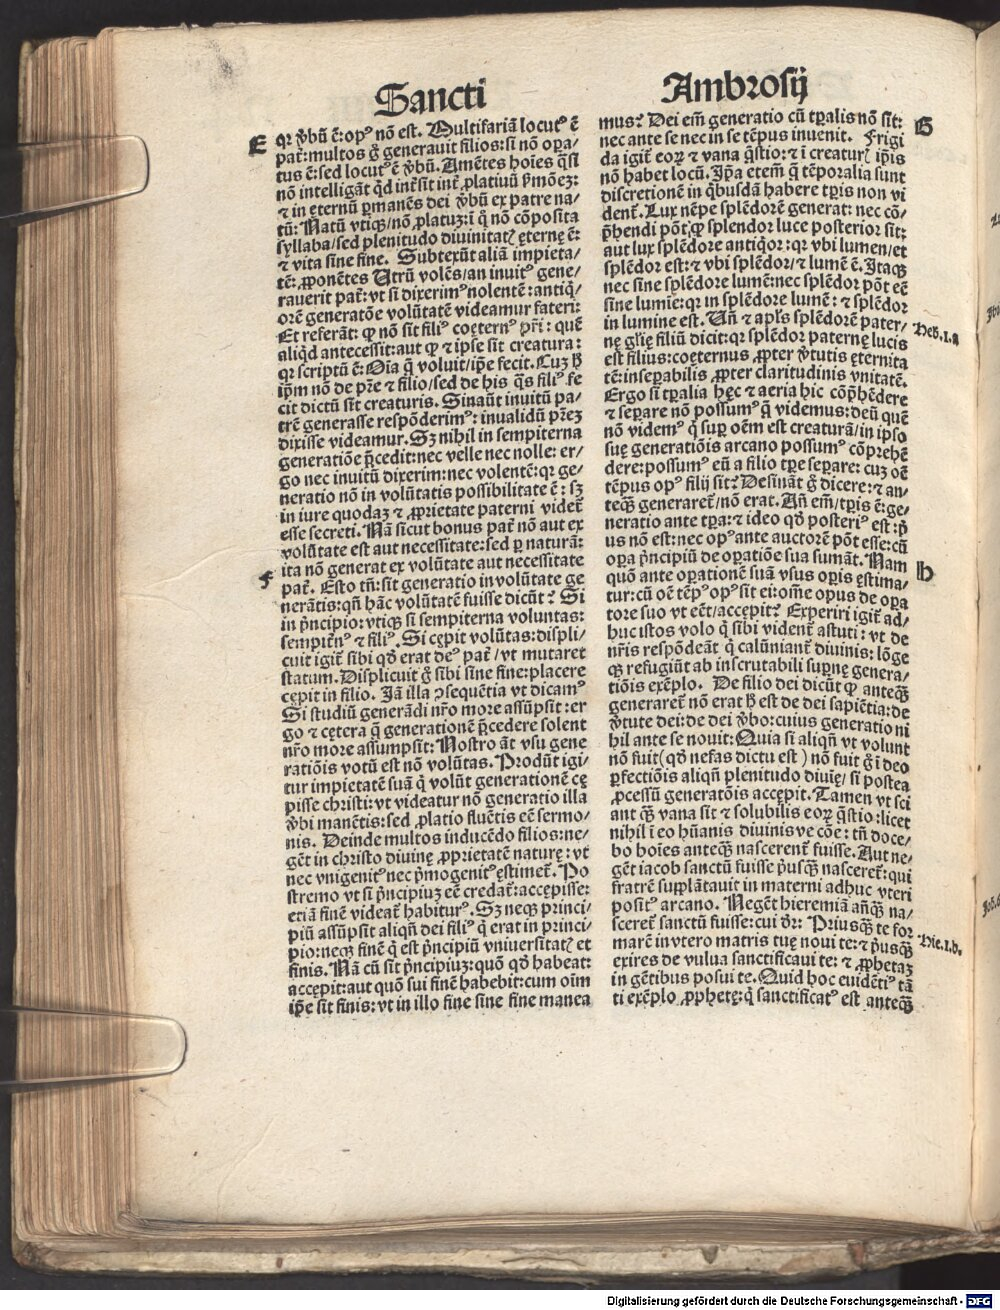 Sancti
E
qꝛ ꝟbū ē: op⁹ nō est. Multifariā locut⁹ ē
pat̄: multos g̊ generauit filios: si nō opa/
tus ē: sed locut⁹ ē ꝟbū. Amētes hoīes q̄si
nō intelligāt qd int̄sit int̄ ꝓlatiuū ẜmōeꝫ:
⁊ in ęternū ꝑmanēs dei ꝟbū ex patre na/
tū: Natū vtiqꝫ/nō ꝓlatuꝫ: ī q̊ nō cōposita
syllaba/sed plenitudo diuinitatꝭ ęternę ē:
⁊ vita sine fine. Subtexūt aliā impieta/
tē: ꝓponētes Utrū volēs/an inuit⁹ gene/
rauerit pat̄: vt si dixerim⁹ nolentē: antiq̊/
orē generatōe volūtatē videamur fateri:
Et referāt: ꝙ nō sit fili⁹ coętern⁹ pr̄i: quē
aliqd antecessit: aut ꝙ ⁊ ip̄e sit creatura:
qꝛ scriptū ē: Oīa q̄ voluit/ip̄e fecit. Cuꝫ ẖ
ip̄m nō de pr̄e ⁊ filio/sed de his q̄s fili⁹ fe
cit dictū sit creaturis. Sinaūt inuitū pa/
trē generasse respōderim⁹: inualidū pr̄eꝫ
dixisse videamur. Sꝫ nihil in sempiterna
generatiōe p̄cedit: nec velle nec nolle: er/
go nec inuitū dixerim: nec volentē: qꝛ ge/
neratio nō in volūtatis possibilitate ē: sꝫ
in iure quodaꝫ ⁊ ꝓprietate paterni videt̄
esse secreti. Nā sicut bonus pat̄ nō aut ex
volūtate est aut necessitate: sed ꝑ naturā:
ita nō generat ex volūtate aut necessitate
F
pat̄. Esto tn̄: sit generatio in volūtate ge
nerātis: qn̄ hāc volūtatē fuisse dicūt? Si
in p̄ncipio: vtiqꝫ si sempiterna voluntas:
sempit̄n⁹ ⁊ fili⁹. Si cępit volūtas: displi/
cuit igit̄ sibi qđ erat de⁹ pat̄/vt mutaret
statum. Displicuit g̊ sibi sine fine: placere
cępit in filio. Jā illa ↄsequētia vt dicam⁹
Si studiū generādi nr̄o more assūpsit: er
go ⁊ cętera q̄ generationē p̄cedere solent
nr̄o more assumpsit: Nostro āt vsu gene
ratiōis votū est nō volūtas. Produ̅t igi/
tur impietatē suā q̇ volūt generationē cę
pisse christi: vt videatur nō generatio illa
ꝟbi manētis: sed ꝓlatio fluētis eē sermo/
nis. Deinde multos inducēdo filios: ne/
gēt in christo diuinę ꝓprietatē naturę: vt
nec vnigenit⁹ nec p̄mogenit⁹ ęstimet̄. Po
stremo vt si p̄ncipiuꝫ eē credat̄: accępisse:
etiā finē videat̄ habitur⁹. Sꝫ neqꝫ princi/
piū assūpsit aliqn̄ dei fili⁹ q̇ erat in princi/
pio: neqꝫ finē q̇ est p̄ncipiū vniuersitatꝭ et
finis. Nā cū sit p̄ncipiuꝫ: quō qđ habeat:
accępit: aut quō sui finē habebit: cum oīm
ip̄e sit finis: vt in illo fine sine fine manea
Ambrosij
mus? Dei em̄ generatio cū tꝑalis nō sit:
G
nec ante se nec in se tēpus inuenit. Frigi
da igit̄ eoꝝ ⁊ vana q̄stio: ⁊ ī creaturꝭ ip̄is
nō habet locū. Ip̄a etem̄ q̄ tēporalia sunt
discretionē in q̇busdā habere tꝑis non vi
dent̄. Lux nēpe splēdorē generat: nec cō/
p̄hendi pōt ꝙ splendor luce posterior sit:
aut lux splēdore antiq̊or: qꝛ vbi lumen/et
splēdor est: ⁊ vbi splēdor/⁊ lumē ē. Itaqꝫ
nec sine splēdore lumē: nec splēdor pōt eē
sine lumīe: qꝛ in splēdore lumē: ⁊ splēdor
in lumine est. Vn̄ ⁊ apl̄s splēdorē pater/
Heb.1.a
nę gl̄ię filiū dicit: qꝛ splēdor paternę lucis
est filius: coęternus ꝓpter ꝟtutis ęternita
tē: inseꝑabilis ꝓpter claritudinis vnitatē.
Ergo si tꝑalia hęc ⁊ aeria hic cōp̄hēdere
⁊ seꝑare nō possum⁹ q̄ videmus: deū quē
nō videm⁹ q̇ suꝑ oēm est creaturā/in ipso
suę generatiōis arcano possum⁹ cōprehē
dere: possum⁹ eū a filio tꝑe seꝑare: cuꝫ oē
tēpus op⁹ filij sit? Desināt g̊ dicere: ⁊ an/
teqꝫ generaret̄/nō erat. An̄ em̄/tꝑis ē: ge/
neratio ante tꝑa: ⁊ ideo qđ posteri⁹ est: p̄
us nō est: nec op⁹ ante auctorē pōt esse: cū
oꝑa p̄ncipiū de oꝑatiōe sua sumāt. Nam
H
quō ante oꝑationē suā vsus oꝑis ęstima/
tur: cū oē tēp⁹ op⁹ sit ei: om̄e opus de oꝑa
tore suo vt eēt/accępit? Experiri igit̄ ad/
huc istos volo q̇ sibi vident̄ astuti: vt de
nr̄is respōdeāt q̇ calūniant̄ diuinis: lōge
qꝫ refugiūt ab inscrutabili supnę genera/
tiōis exēplo. De filio dei dicūt ꝙ anteqꝫ
generaret̄ nō erat ẖ est de dei sapiētia: de
ꝟtute dei: de dei ꝟbo: cuius generatio ni
hil ante se nouit: Quia si aliqn̄ vt volunt
nō fuit (qđ nefas dictu est) nō fuit g̊ ī deo
ꝑfectiōis aliqn̄ plenitudo diuię/ si postea
ꝓcessū generatōis accępit. Tamen vt sci
ant qꝫ vana sit ⁊ solubilis eoꝝ q̄stio: licet
nihil ī eo hūanis diuinisve cōe: tn̄ doce/
bo hoīes anteqꝫ nascerent̄ fuisse. Aut ne/
gēt iacob sanctū fuisse p̄usqꝫ nasceret̄: qui
fratrē supplātauit in materni adhuc vteri
posit⁹ arcano. Negēt hieremiā an̄qꝫ na/
sceret̄ sanctū fuisse: cui dr̄: Priusqꝫ te for
marē in vtero matris tuę noui te: ⁊ p̄usqꝫ
Hie.1.b.
exires de vulua sanctificaui te: ⁊ ꝓphetaꝫ
in gētibus posui te. Quid hoc euidēti⁹ tā
ti exēplo ꝓphetę: q̇ sanctificat⁹ est anteqꝫ
Digitalisierung gefördert durch die Deutsche Forschungsgemeinschaft - DFG